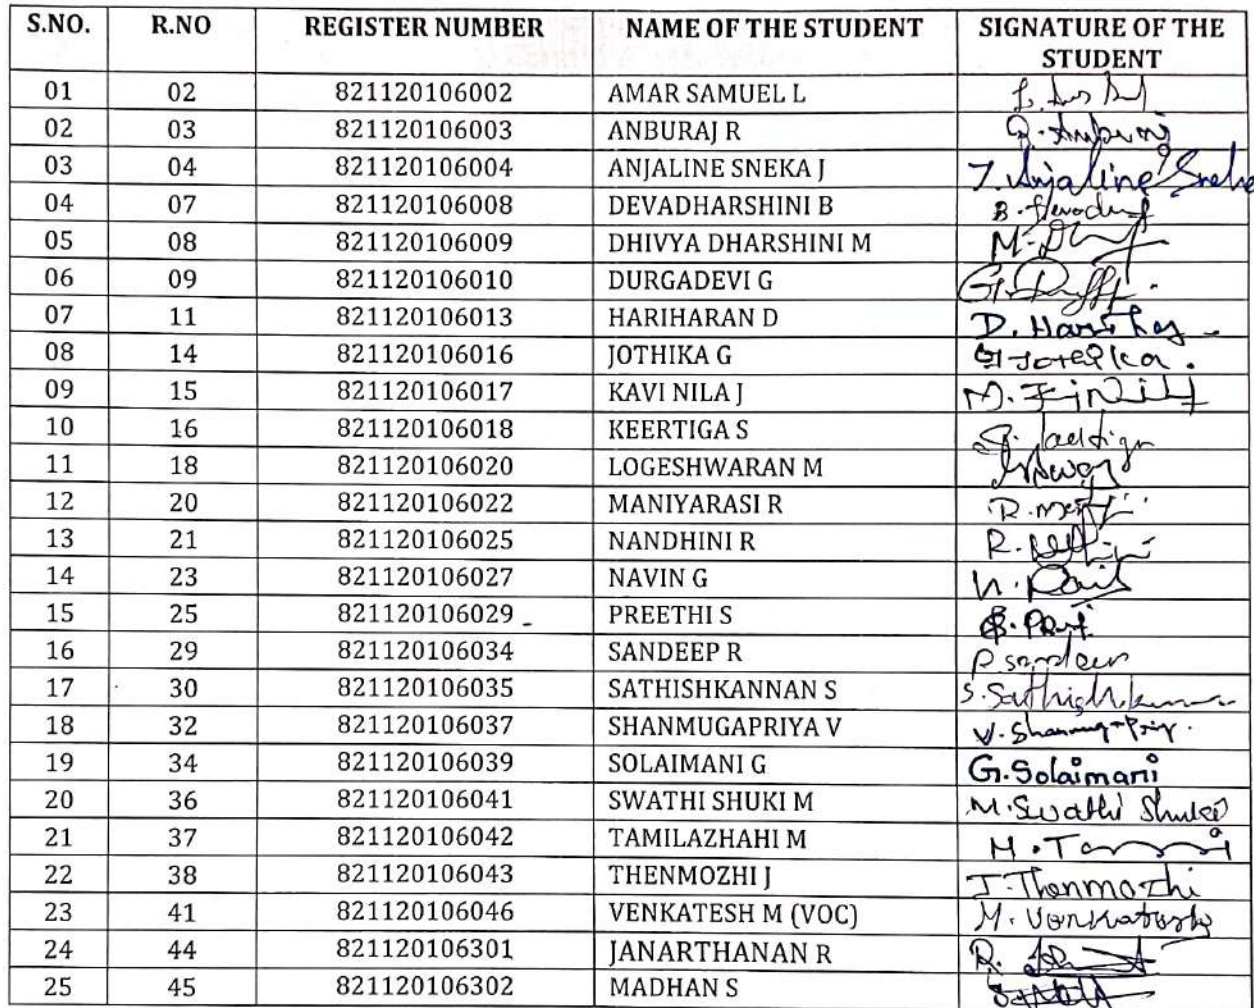 S.NO. R.NO REGISTER NUMBER NAME OF THE STUDENT SIGNATURE OF THE STUDENT
01 02 821120106002 AMAR SAMUEL L
02 03 821120106003 ANBURAJ R
03 04 821120106004 ANJALINE SNEKA J J. Anjaline Sneha
04 07 821120106008 DEVADHARSHINI B
05 08 821120106009 DHIVYA DHARSHINI M
06 09 821120106010 DURGADEVI G
07 11 821120106013 HARIHARAN D
08 14 821120106016 JOTHIKA G
09 15 821120106017 KAVI NILA J
10 16 821120106018 KEERTIGA S
11 18 821120106020 LOGESHWARAN M
12 20 821120106022 MANIYARASI R
13 21 821120106025 NANDHINI R
14 23 821120106027 NAVIN G
15 25 821120106029 PREETHI S
16 29 821120106034 SANDEEP R
17 30 821120106035 SATHISHKANNAN S
18 32 821120106037 SHANMUGAPRIYA V
19 34 821120106039 SOLAIMANI G G.Solaimani
20 36 821120106041 SWATHI SHUKI M M.Swathi Shuki
21 37 821120106042 TAMILAZHAHI M
22 38 821120106043 THENMOZHI J J.Thenmozhi
23 41 821120106046 VENKATESH M (VOC) M.Venkatesh
24 44 821120106301 JANARTHANAN R
25 45 821120106302 MADHAN S